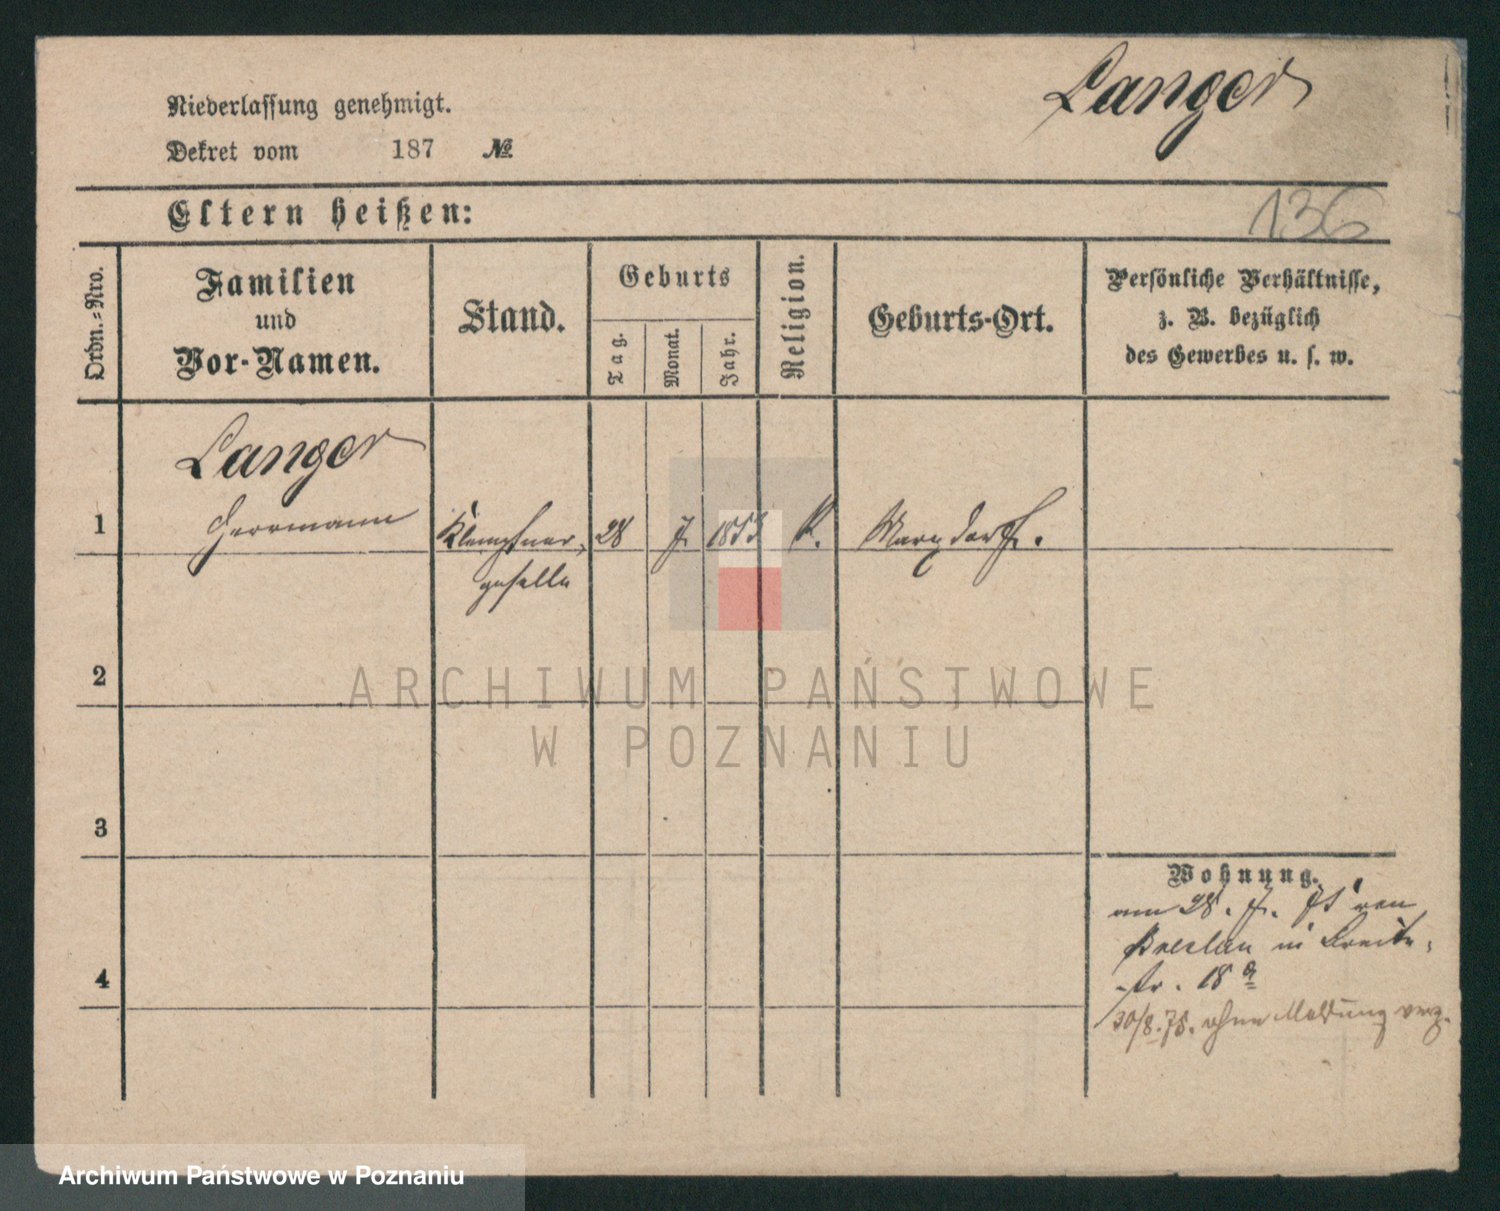 Langer
Niederlassung genehmigt.
Dekret vom 187 №
Eltern heißen:
136
Ordn.-Nro.
Familien
und
Vor-Namen.
Stand.
Geburts
Tag.
Monat.
Jahr.
Religion.
Geburts-Ort.
Persönliche Verhältnisse,
z. B. bezüglich
des Gewerbes u. s. w.
Langer
1 Herrmann Klemptner, 28 7. 1853 K. Marxdorf.
geselle
2
3
4
Wohnung.
am 28. 7. 75 von
Breslau in Breite-
str. 18 a
30/8. 75. ohne Meldung verz.
ARCHIWUM PAŃSTWOWE
W POZNANIU
Archiwum Państwowe w Poznaniu